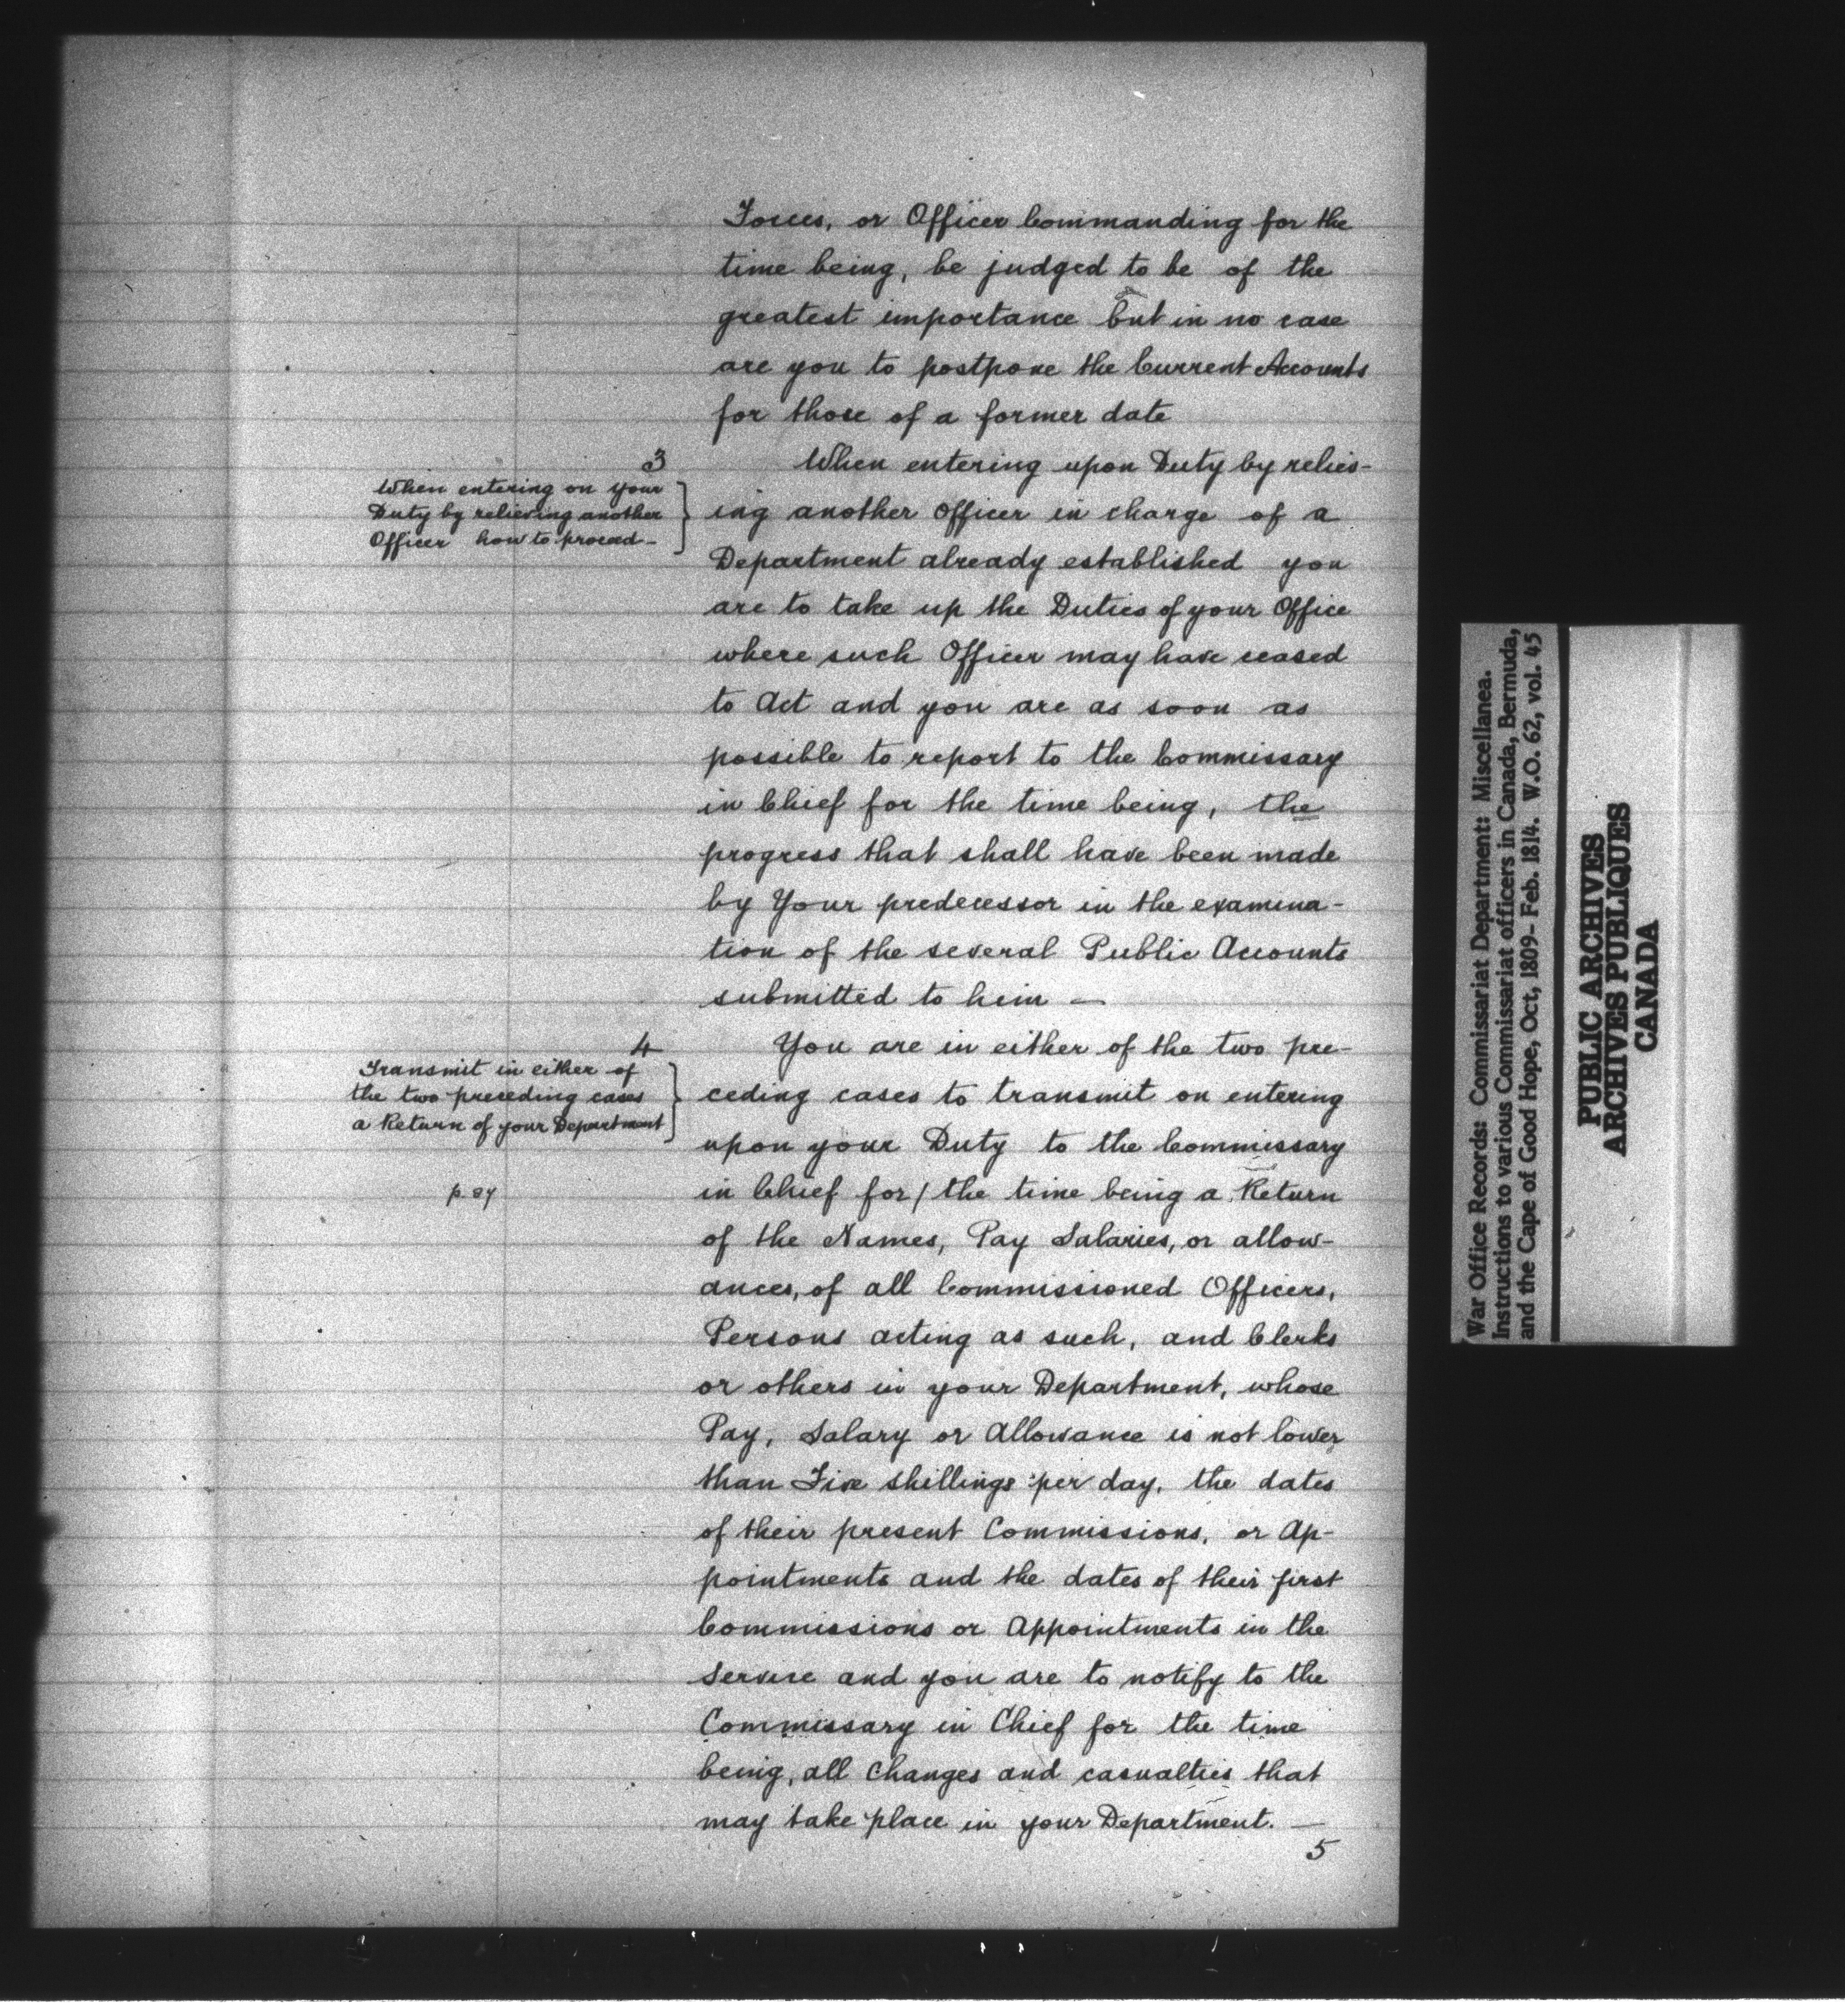 Forces, or Officer Commanding for the
time being, be judged to be of the
greatest importance but in no case
are you to postpone the Current Accounts
for those of a former date
3
When entering on your
Duty by relieving another
Officer how to proceed-
When entering upon Duty by reliev-
ing another Officer in charge of a
Department already established you
are to take up the Duties of your Office
where such Officer may have ceased
to Act and you are as soon as
possible to report to the Commissary
in Chief for the time being, the
progress that shall have been made
by Your predecessor in the examina-
tion of the several Public Accounts
submitted to him —
4
Transmit in either of
the two preceding cases
a Return of your Department
You are in either of the two pre-
ceding cases to transmit on entering
upon your Duty to the Commissary
in Chief for/ the time being a Return
of the Names, Pay Salaries, or allow-
ances, of all Commissioned Officers,
Persons acting as such, and Clerks
or others in your Department, whose
Pay, Salary or Allowance is not lower
than Five shillings per day, the dates
of their present Commissions, or Ap-
pointments and the dates of their first
Commissions or Appointments in the
Service and you are to notify to the
Commissary in Chief for the time
being, all changes and casualties that
may take place in your Department. —
5
War Office Records: Commissariat Department: Miscellanea.
Instructions to various Commissariat officers in Canada, Bermuda,
and the Cape of Good Hope, Oct, 1809- Feb. 1814. W.O. 62, vol. 45
PUBLIC ARCHIVES
ARCHIVES PUBLIQUES
CANADA